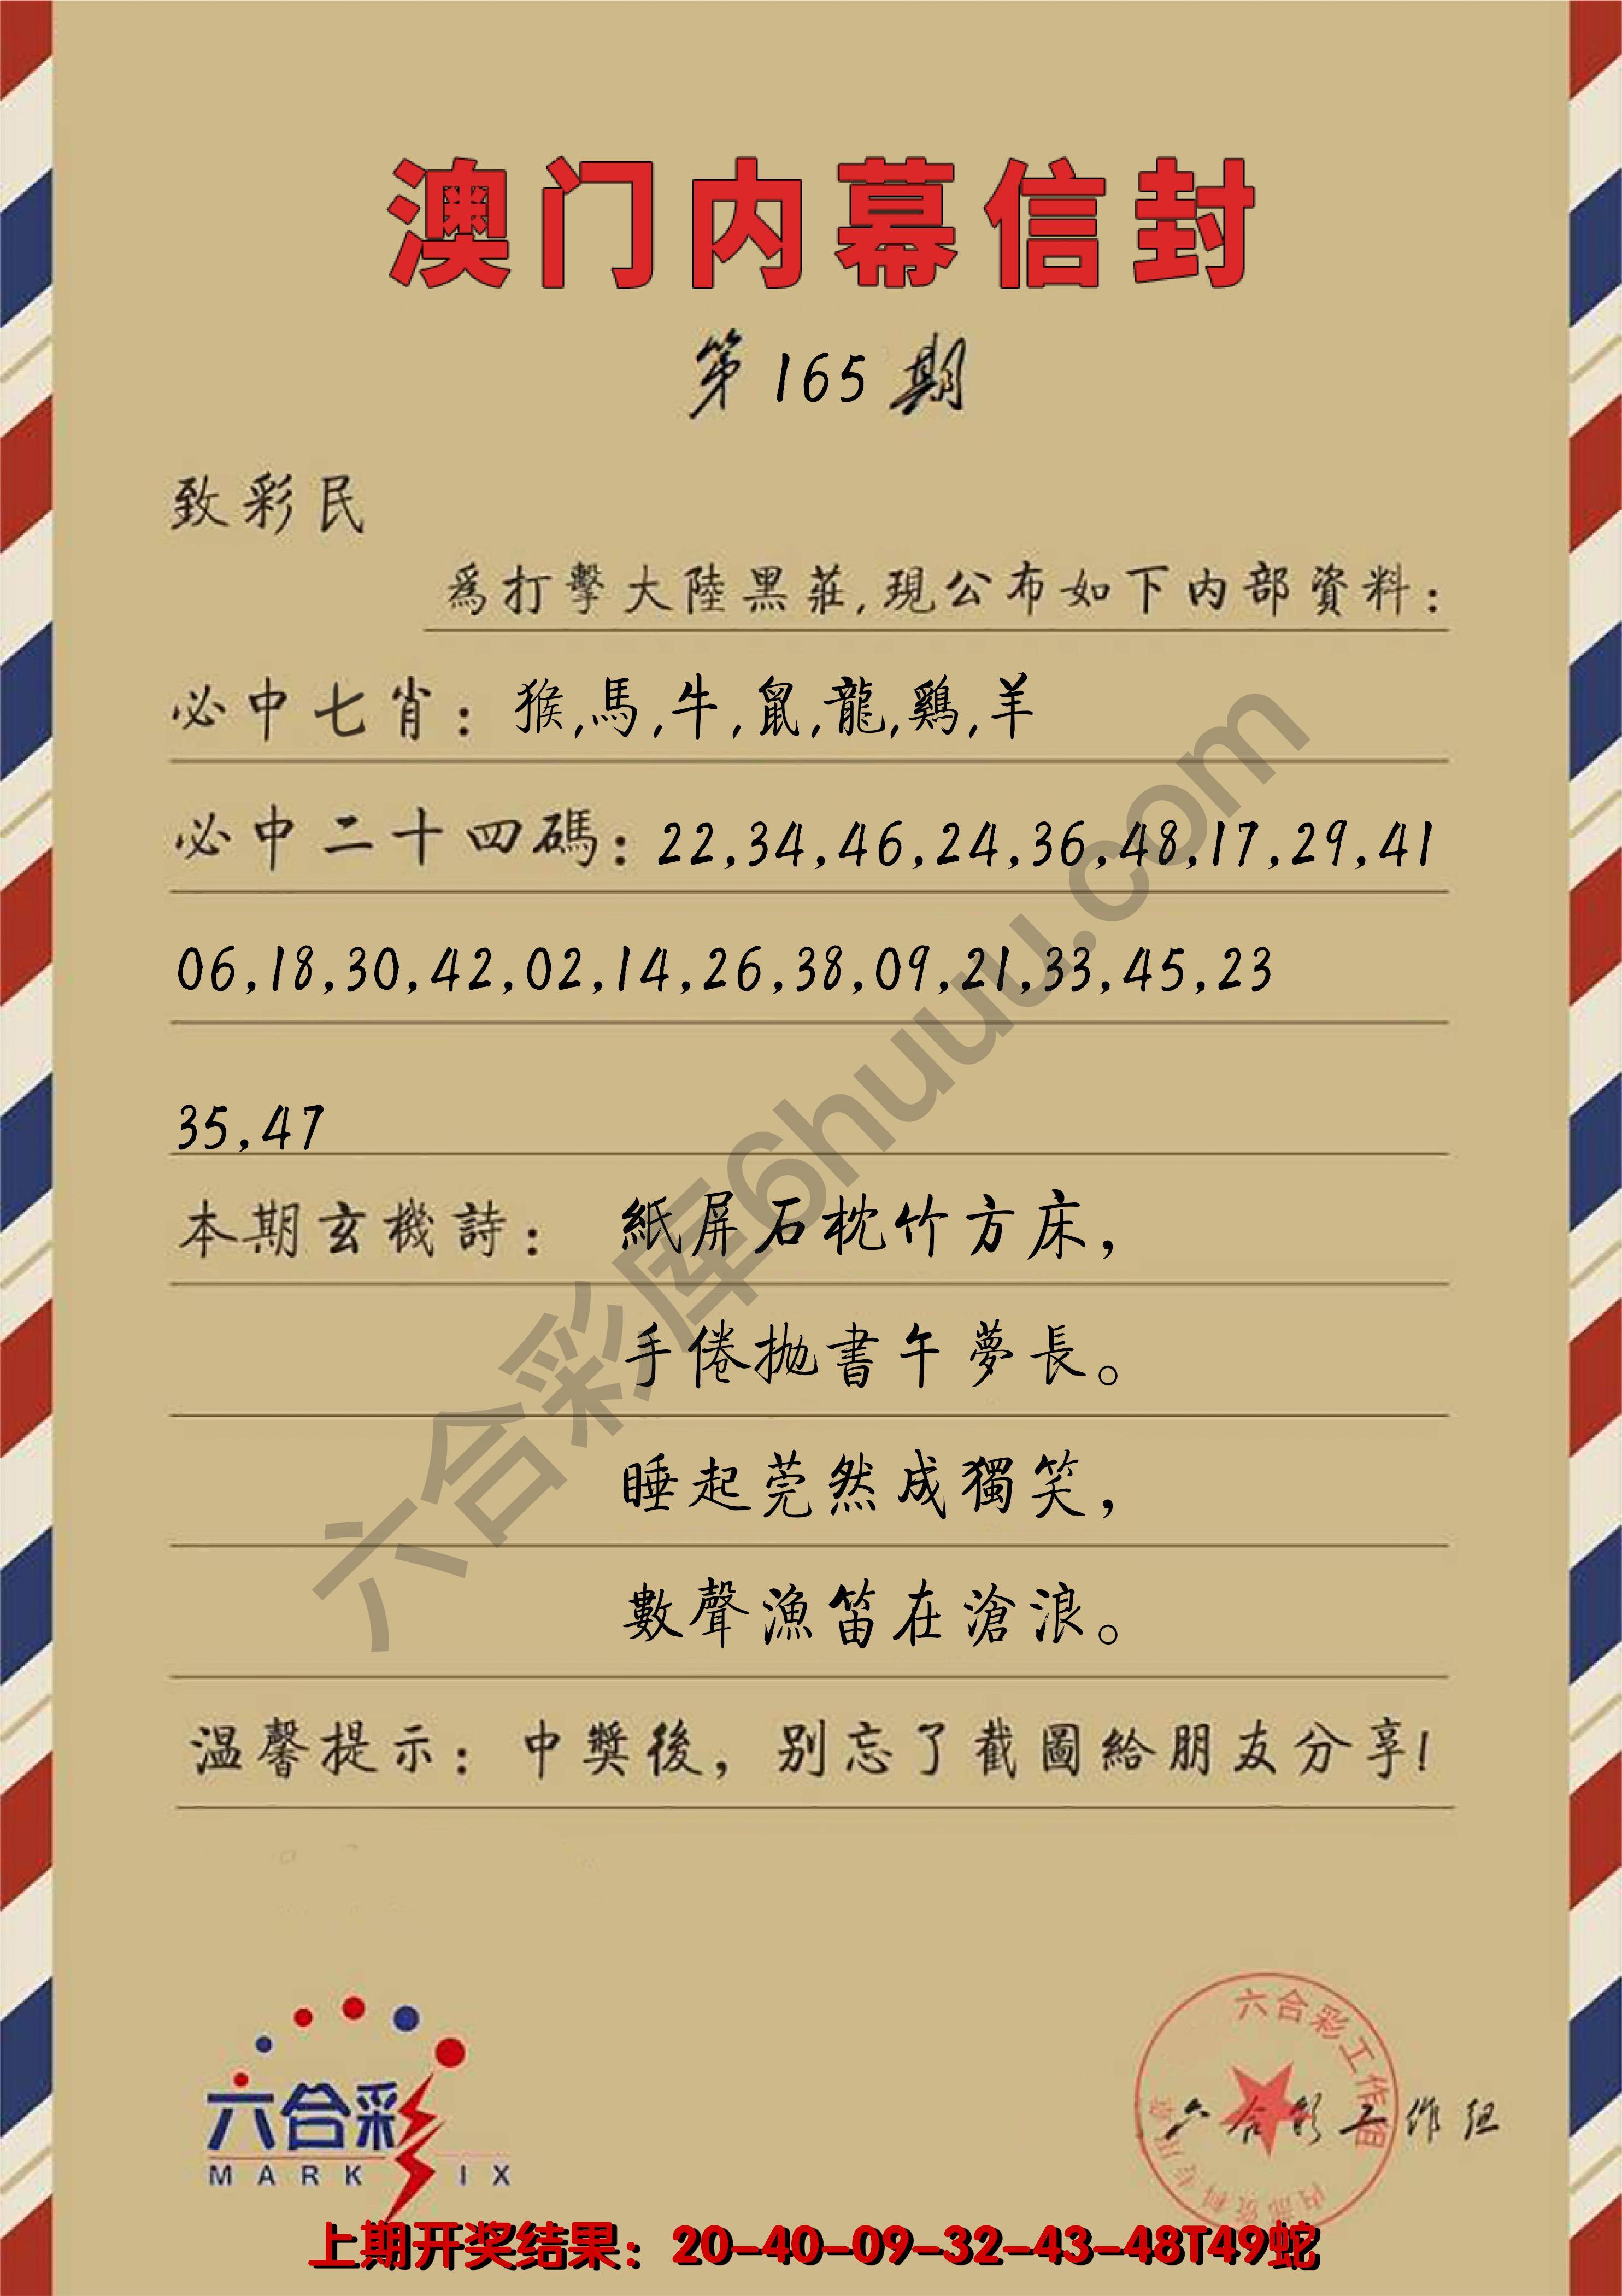 澳门内幕信封
第165期
致彩民
爲打擊大陸黑莊,現公布如下内部資料:
必中七肖:猴,馬,牛,鼠,龍,鷄,羊
必中二十四碼:22,34,46,24,36,48,17,29,41
06,18,30,42,02,14,26,38,09,21,33,45,23
35,47
本期玄機詩:紙屏石枕竹方床,
手倦抛書午夢長。
睡起莞然成獨笑,
數聲漁笛在滄浪。
温馨提示:中獎後,别忘了截圖給朋友分享!
六合彩库6huuu.com
六合彩
MARK IX
六合彩工作组
内部资料专用章
六合彩工作组
上期开奖结果:20-40-09-32-43-48T49蛇